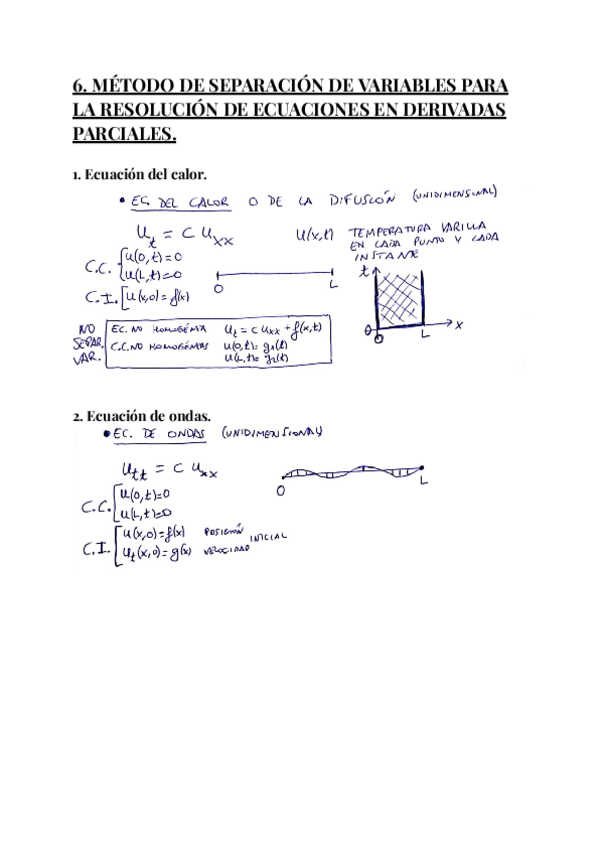 6. MÉTODO DE SEPARACIÓN DE VARIABLES PARA
LA RESOLUCIÓN DE ECUACIONES EN DERIVADAS
PARCIALES.
1. Ecuación del calor.
• EC. DEL CALOR O DE LA DIFUSIÓN (UNIDIMENSIONAL)
u_t = c u_xx
u(x,t) TEMPERATURA VARILLA
EN CADA PUNTO Y CADA
INSTANTE
C.C. { u(0,t)=0
u(L,t)=0
C.I. [ u(x,0)=f(x)
0 L
t
0 L x
NO
SEPAR.
VAR.
EC. NO HOMOGÉNEA u_t = c u_xx + f(x,t)
C.C. NO HOMOGÉNEAS u(0,t)= g1(t)
u(L,t)= g2(t)
2. Ecuación de ondas.
• EC. DE ONDAS (UNIDIMENSIONAL)
u_tt = c u_xx
0 L
C.C. [ u(0,t)=0
u(L,t)=0
C.I. [ u(x,0)=f(x) POSICIÓN INICIAL
u_t(x,0)=g(x) VELOCIDAD